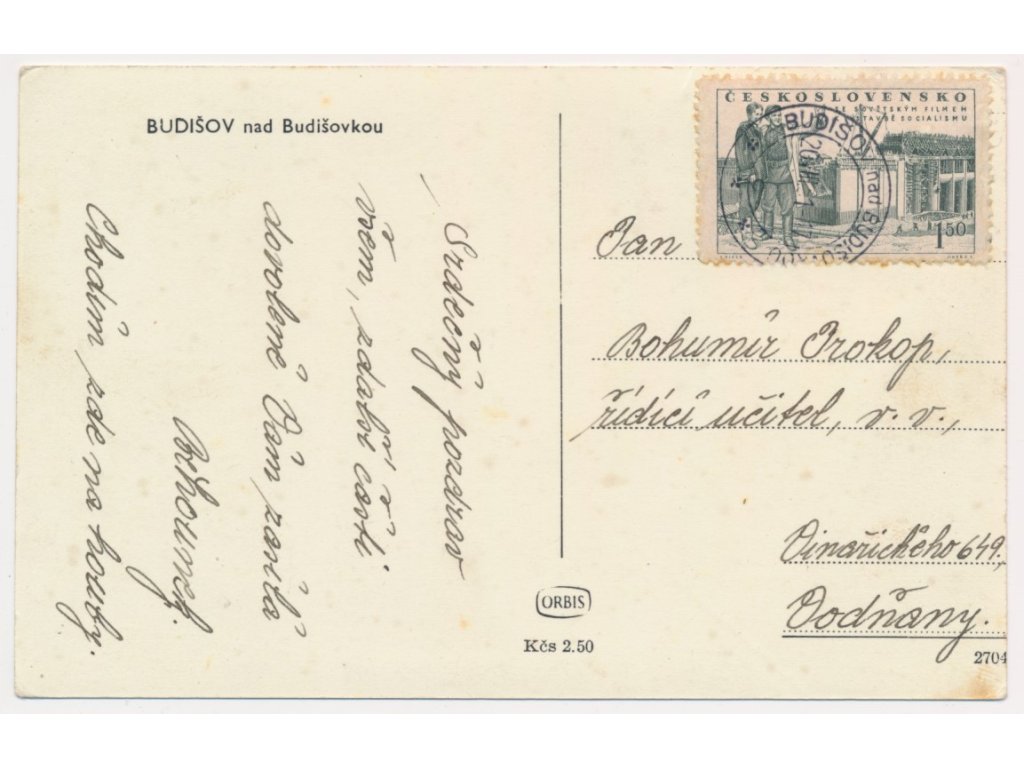 BUDIŠOV nad Budišovkou
Srdečný pozdrav
všem, z další cesti
dovolené Vám zasílá
Říhovský.
Chodím zde na houby.
ČESKOSLOVENSKO
SE SOVĚTSKÝM FILMEM
SOCIALISMU
1 50
BUDIŠOV nad BUDIŠOVKOU
Pan
Bohumír Prokop,
řídící učitel, v. v.,
Vinařického 649.
Vodňany.
ORBIS
Kčs 2.50
2704